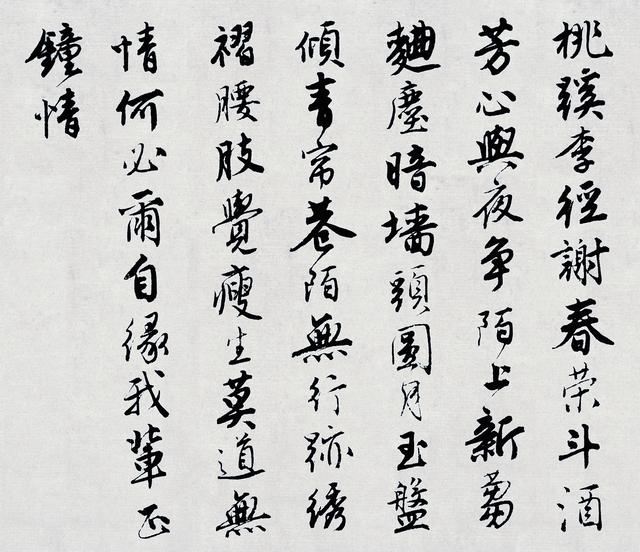 桃蹊李徑謝春荣斗酒
芳心與夜争陌上新芻
麯塵暗墙頭圓月玉盤
傾青帘巷陌無行跡綉
褶腰肢覺瘦生莫道無
情何必爾自緣我輩正
鐘情